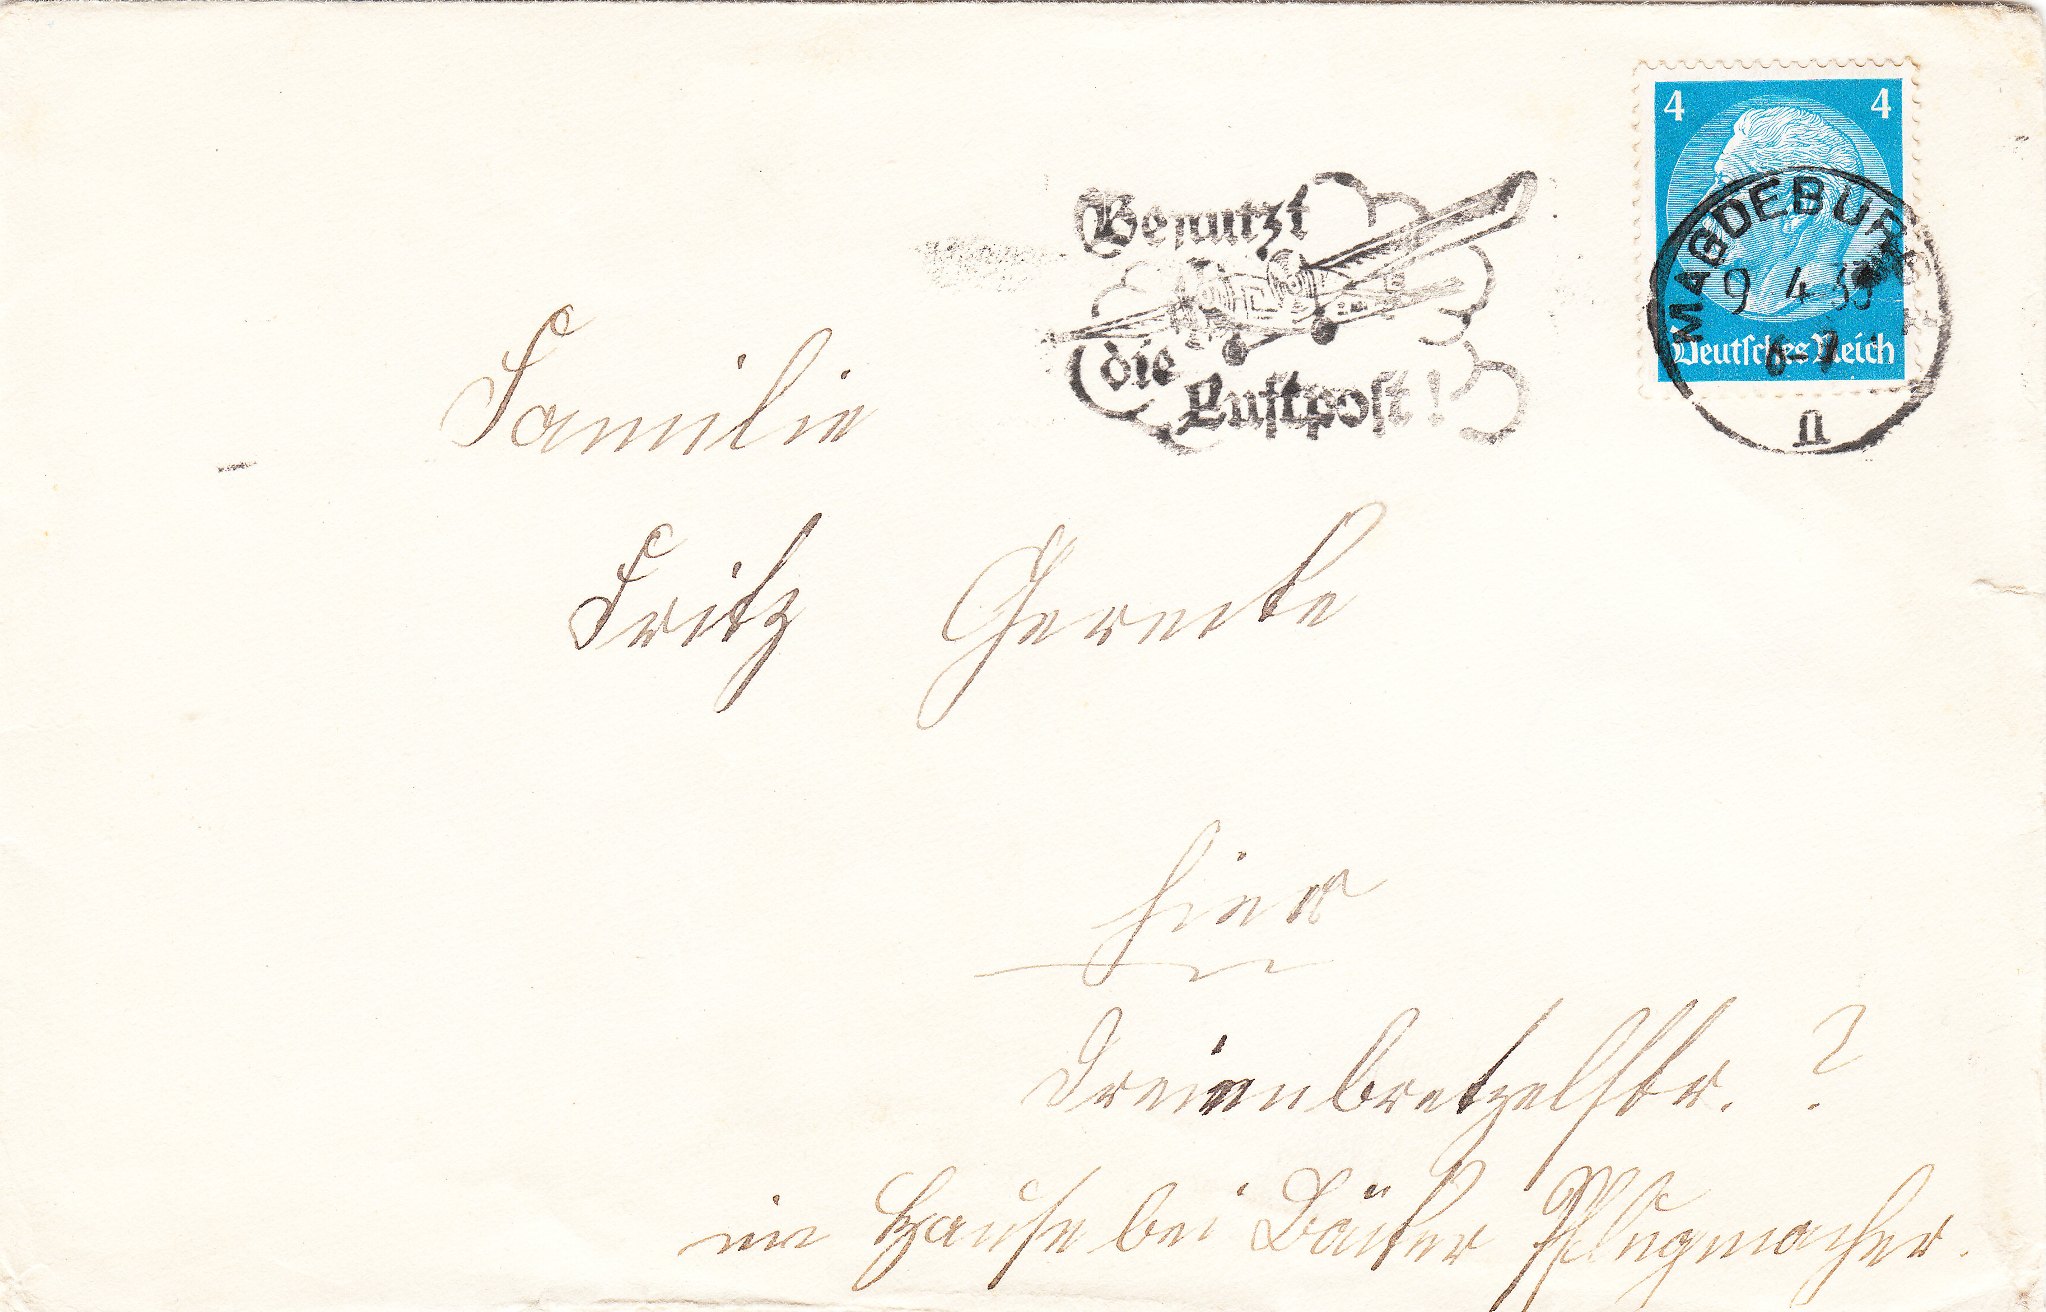 4 4
Deutsches Reich
MAGDEBURG
9 4 33
6-7
n
Benutzt
die
Luftpost!
Familie
Fritz Gerecke
hier
Dreienbretzelstr. ?
im Hause bei Bäcker Pflugmacher.